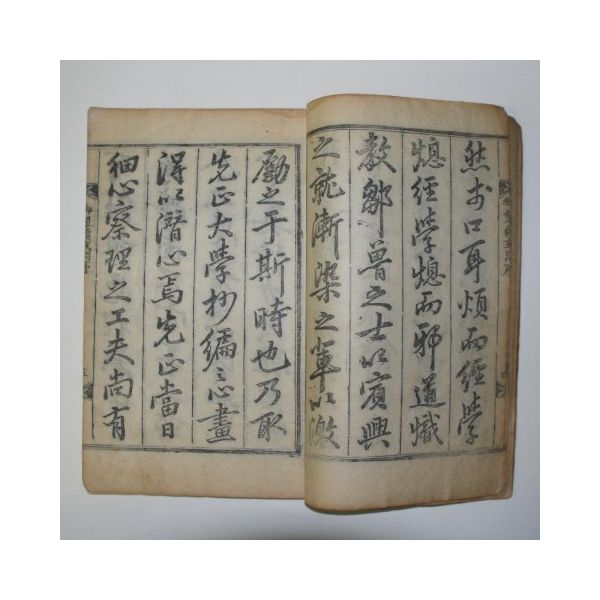 然於口耳煩而經學
熄經學熄而邪道熾
教鄒魯之士以賓興
之就漸染之輩以激
勵之于斯時也乃取
先正大學抄編志畫
得以潛心焉先正當日
細心察理之工夫尚有